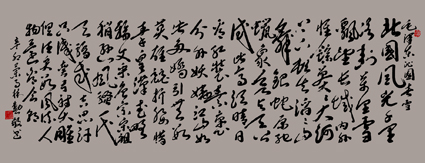 毛泽东沁园春雪
北国风光千里
冰封万里雪
飘望长城内外
惟余莽莽大河
上下顿失滔滔山
舞银蛇原驰
蜡象欲与天公
试比高须晴日
看红装素裹
分外妖娆江山如
此多娇引无数
英雄竞折腰惜
秦皇汉武略
输文采唐宗宋祖
稍逊风骚一代
天骄成吉思汗
只识弯弓射大雕
俱往矣数风流人
物还看今朝
辛卯